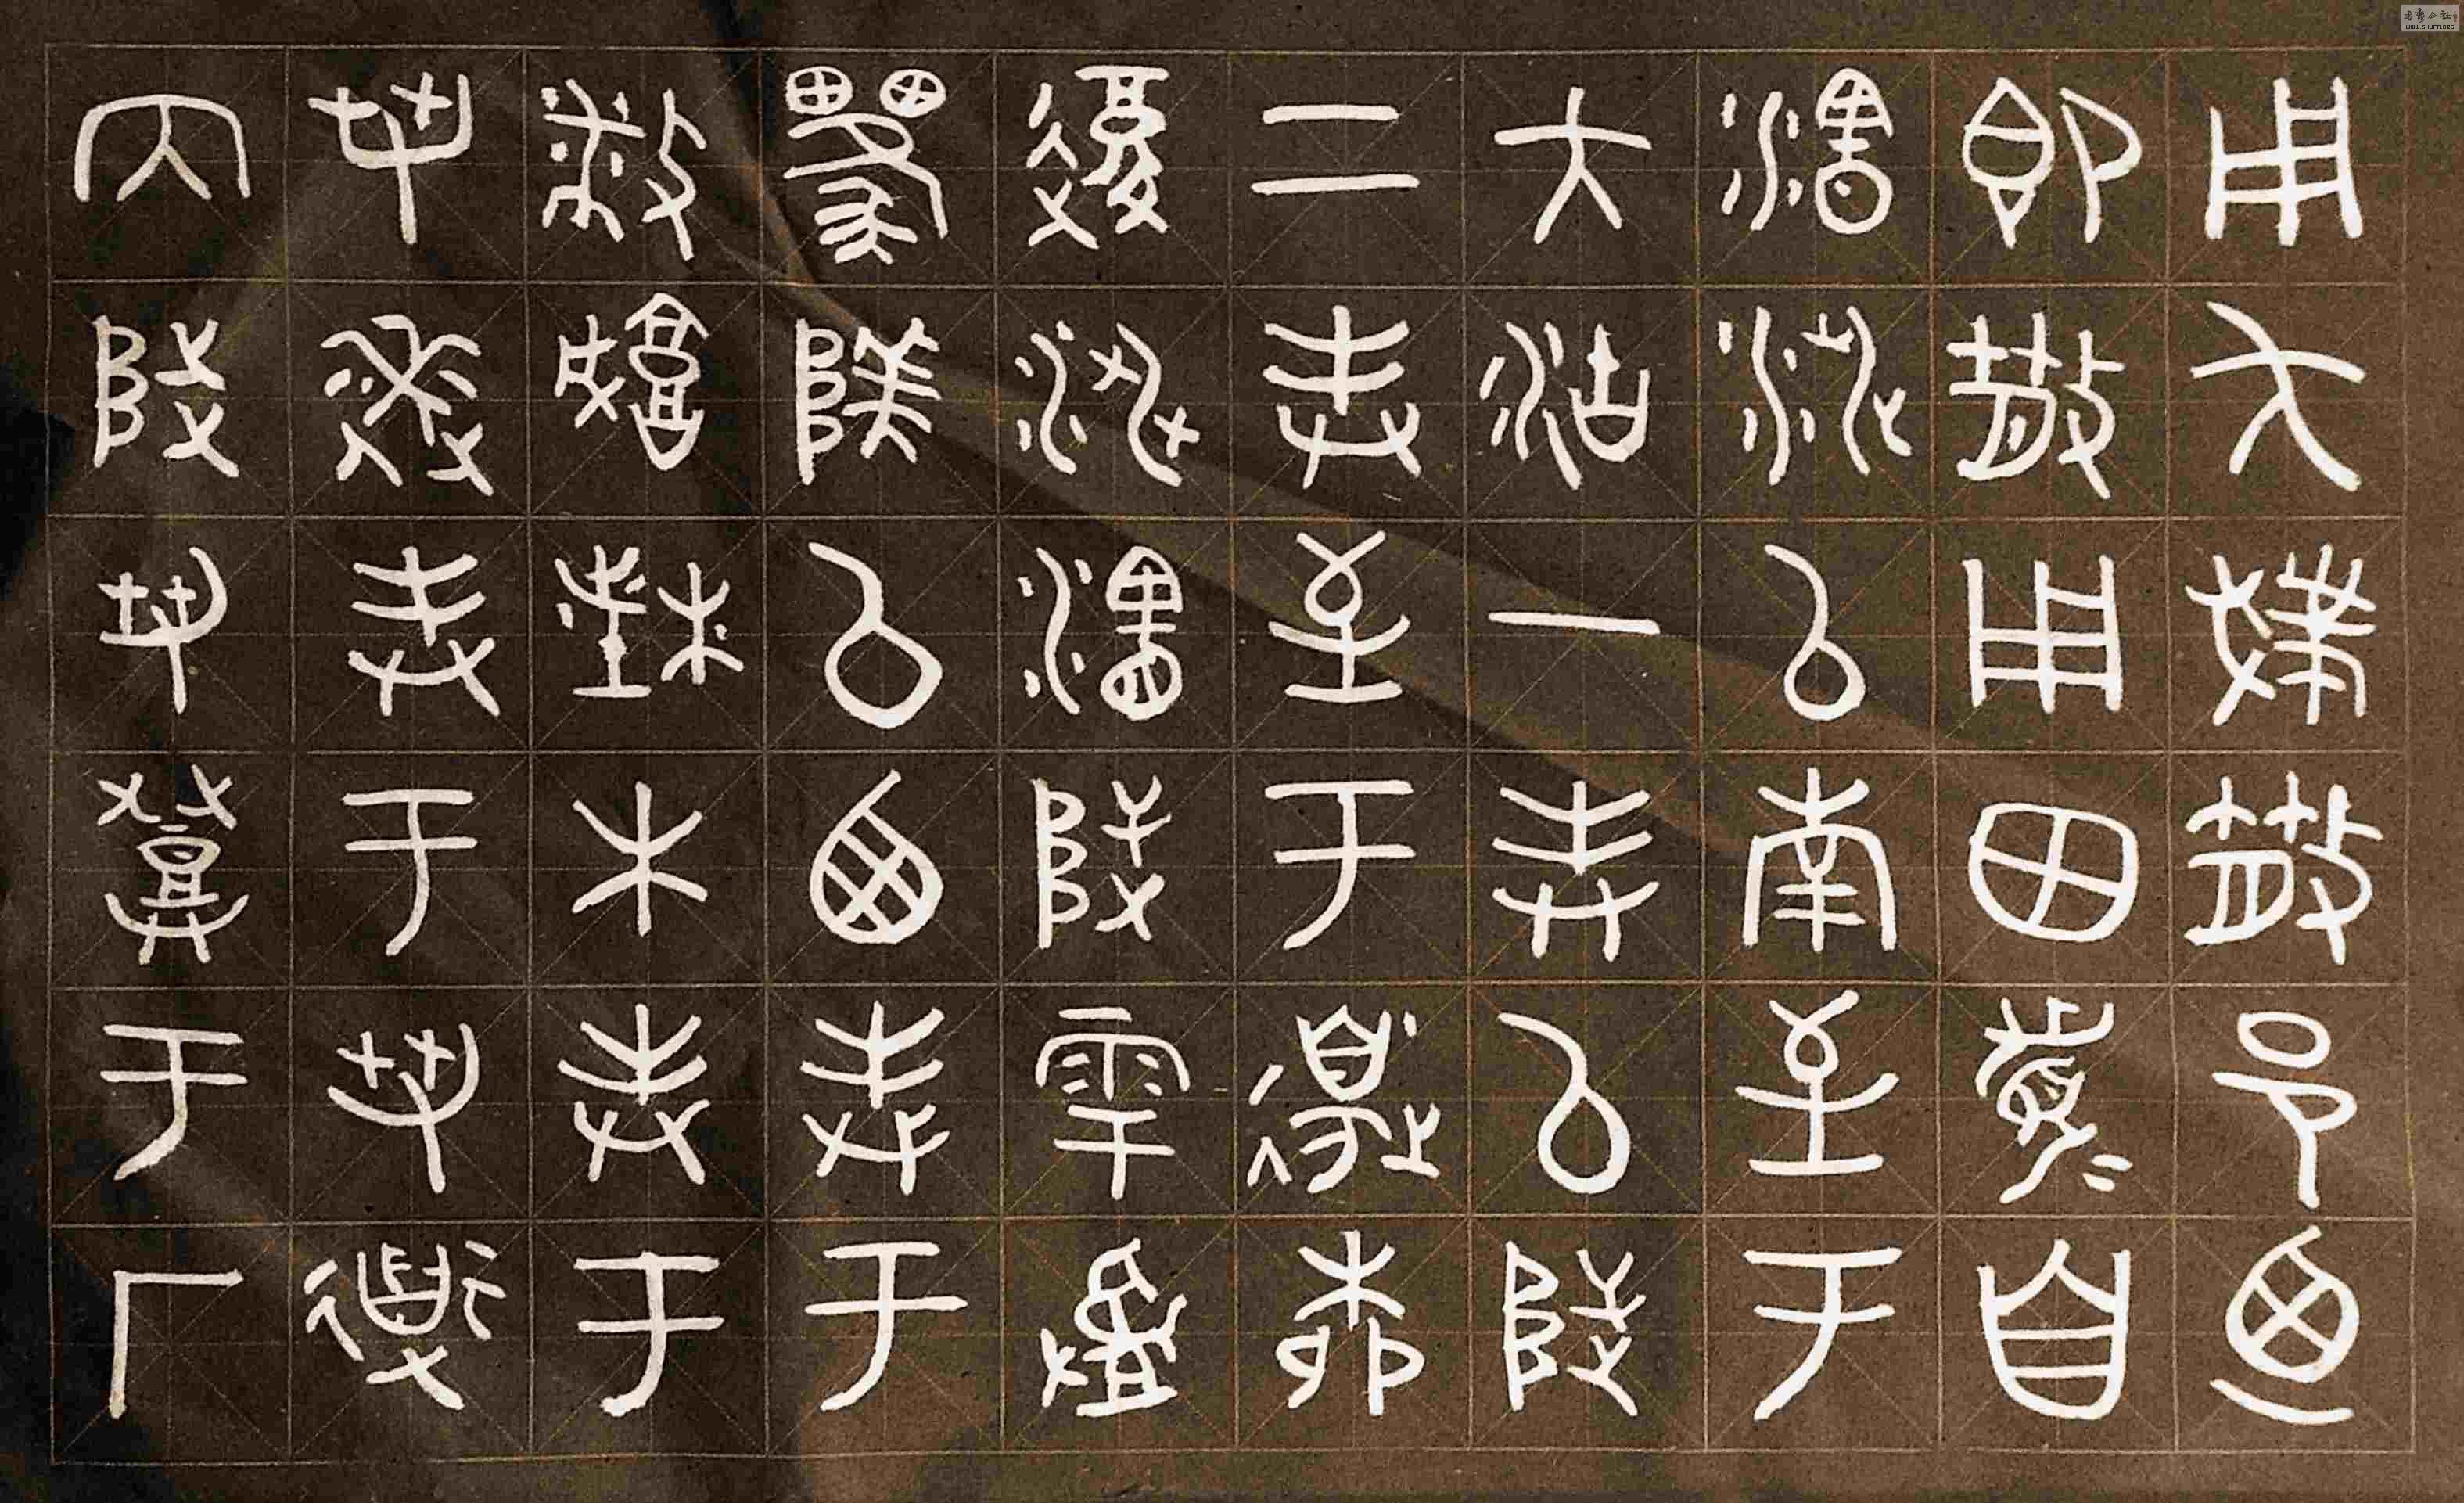 用夨撲散邑廼
即散用田眉自
瀗涉以南至于
大沽一奉以陟
二奉至于邊柳
復涉瀗陟雩
以西奉于
城木奉于
芻逨奉于芻道
內陟芻登于厂